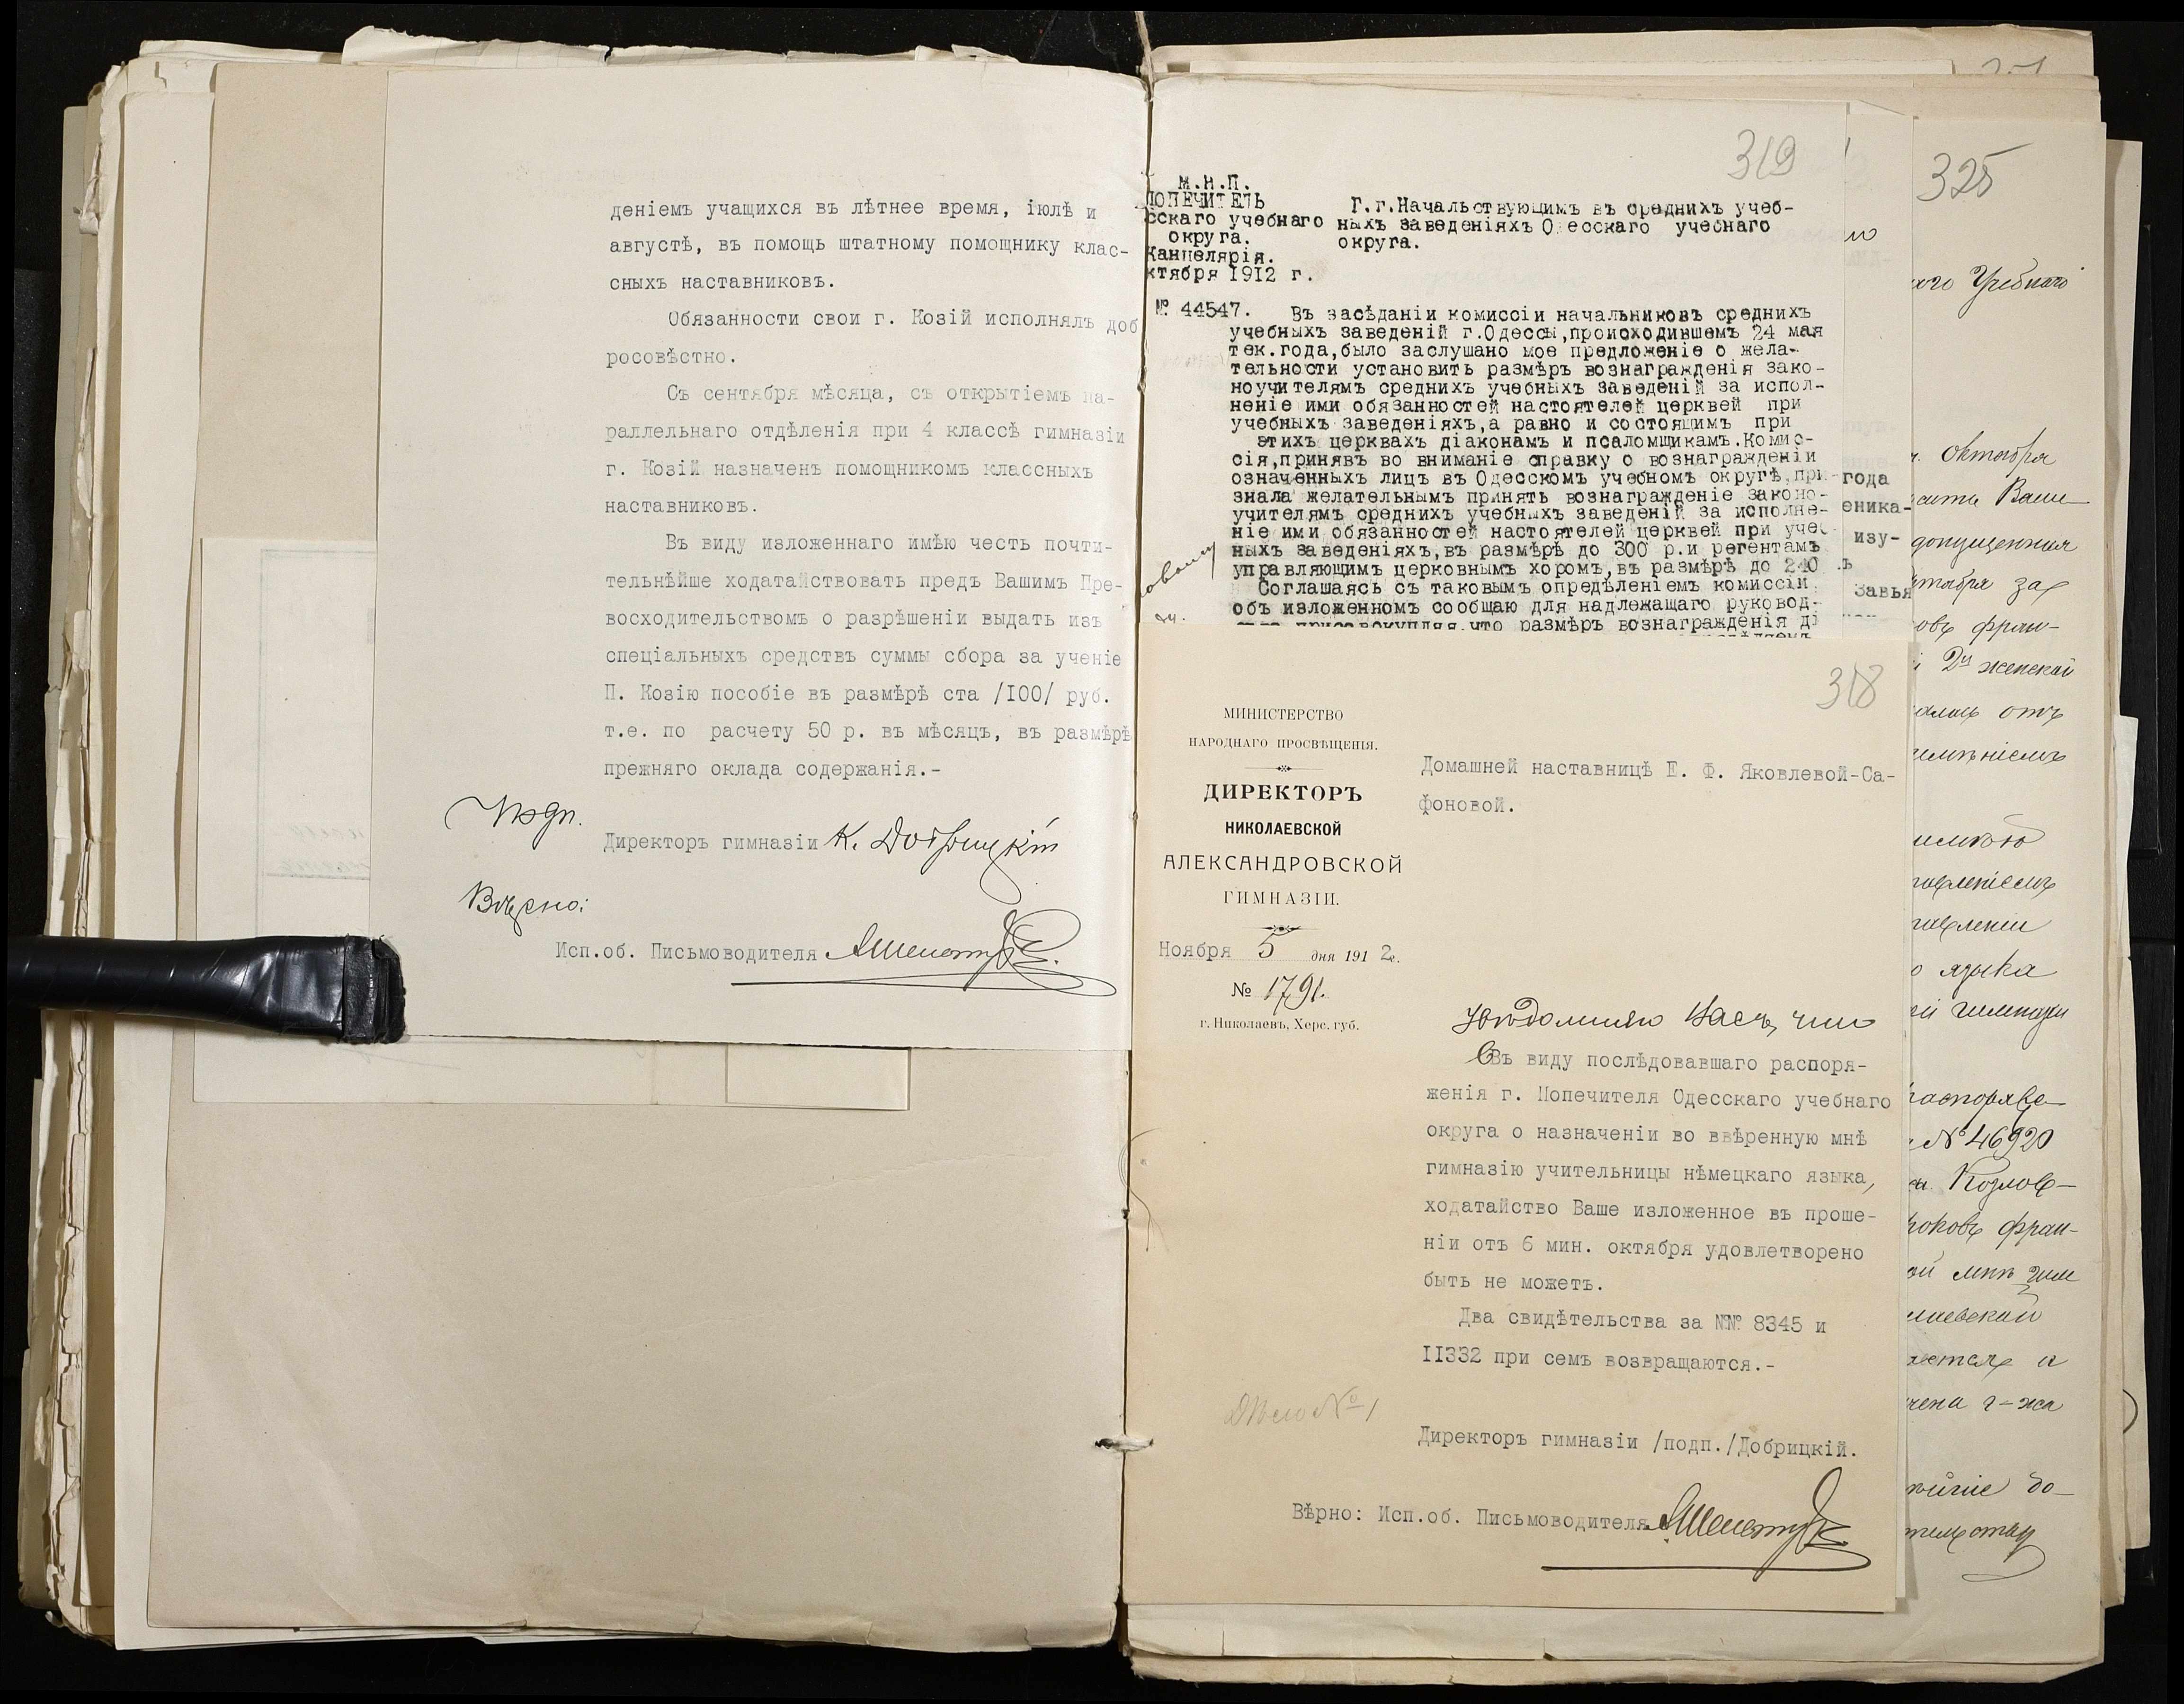 деніемъ учащихся въ лѣтнее время, іюлѣ и
августѣ, въ помощь штатному помощнику клас-
сныхъ наставниковъ.
Обязанности свои г. Козій исполнялъ доб
росовѣстно.
Съ сентября мѣсяца, съ открытіемъ па-
раллельнаго отдѣленія при 4 классѣ гимназіи
г. Козій назначенъ помощникомъ классныхъ
наставниковъ.
Въ виду изложеннаго имѣю честь почти-
тельнѣйше ходатайствовать предъ Вашимъ Пре-
восходительствомъ о разрѣшеніи выдать изъ
спеціальныхъ средствъ суммы сбора за ученіе
П. Козію пособіе въ размѣрѣ ста /I00/ руб.
т.е. по расчету 50 р. въ мѣсяцъ, въ размѣрѣ
прежняго оклада содержанія.-
Подп.
Директоръ гимназіи К. Добрицкій
Вѣрно:
Исп.об. Письмоводителя
319
М.Н.П.
ПОПЕЧИТЕЛЬ
сскаго учебнаго
округа.
Канцелярія.
ктября I9I2 г.
№ 44547.
Г.г.Начальствующимъ въ среднихъ учеб-
ныхъ заведеніяхъ О есскаго учебнаго
округа.
Въ засѣданіи комиссіи начальниковъ среднихъ
учебныхъ заведеній г.Одессы,происходившемъ 24 мая
тек.года,было заслушано мое предложеніе о жела-
тельности установить размѣръ вознагражденія зако-
ноучителямъ среднихъ учебныхъ заведеній за испол-
неніе ими обязанностей настоятелей церквей при
учебныхъ заведеніяхъ,а равно и состоящимъ при
этихъ церквахъ діаконамъ и псаломщикамъ.Комис-
сія,принявъ во вниманіе справку о вознагражденіи
означенныхъ лицъ въ Одесскомъ учебномъ округѣ,при-
знала желательнымъ принять вознагражденіе законо-
учителямъ среднихъ учебныхъ заведеній за исполне-
ніе ими обязанностей настоятелей церквей при учеб
ныхъ заведеніяхъ,въ размѣрѣ до 300 р.и регентамъ
управляющимъ церковнымъ хоромъ,въ размѣрѣ до 240
Соглашаясь съ таковымъ опредѣленіемъ комиссіи
объ изложенномъ сообщаю для надлежащаго руковод-
присовокупляя,что размѣръ вознагражденія ді
года
еника-
изу-
ъ
завья
318
МИНИСТЕРСТВО
НАРОДНАГО ПРОСВѢЩЕНІЯ.
ДИРЕКТОРЪ
НИКОЛАЕВСКОЙ
АЛЕКСАНДРОВСКОЙ
ГИМНАЗІИ.
Ноября 5 дня 191 2г.
№ 1791.
г. Николаевъ, Херс. губ.
Домашней наставницѣ Е. Ф. Яковлевой-Са-
фоновой.
Увѣдомляю Васъ, что
Въ виду послѣдовавшаго распоря-
женія г. Попечителя Одесскаго учебнаго
округа о назначеніи во ввѣренную мнѣ
гимназію учительницы нѣмецкаго языка,
ходатайство Ваше изложенное въ проше-
ніи отъ 6 мин. октября удовлетворено
быть не можетъ.
Два свидѣтельства за №№ 8345 и
II332 при семъ возвращаются.-
Дѣло № 1
Директоръ гимназіи /подп./Добрицкій.
Вѣрно: Исп.об. Письмоводителя
325
ого Учебнаго
октября
Ваше
допущенная
тября за
овъ фран-
2й женской
алась отъ
имѣніемъ
авленіемъ
авленіи
языка
ей гимназіи
распоряже-
№ 46920
Козлов-
роковъ фран-
ой мнѣ гим
лаевской
ается и
чена г-жа